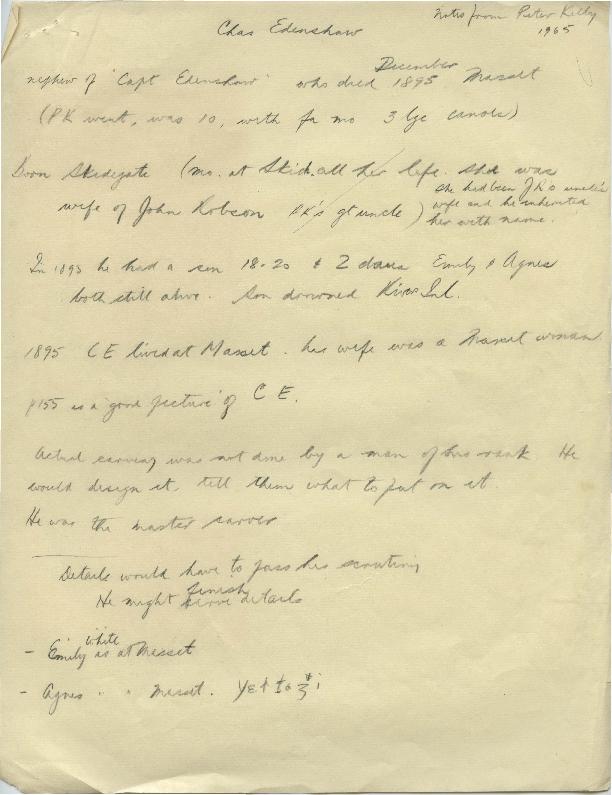 Notes from Peter Kelly
1965
Chas Edenshaw
nephew of "Capt Edenshaw" who died December 1895 Masset
(PK went, was 10, with fa mo 3 lge canoes)
Born Skidegate (mo. at Skid. all her life. She was
wife of John Robson PK's gt uncle) she had been JR's uncle's
wife and he inherited
her with name.
In 1895 he had a son 18-20 & 2 daus Emily & Agnes
both still alive. Son drowned Rivers Inl.
1895 CE lived at Masset. his wife was a Masset woman
p155 is a "good picture" of C E.
Actual carving was not done by a man of his rank He
would design it, tell them what to put on it.
He was the master carver
Details would have to pass his scrutiny
He might finish carve details
- Emily White is at Masset
- Agnes " " Masset.